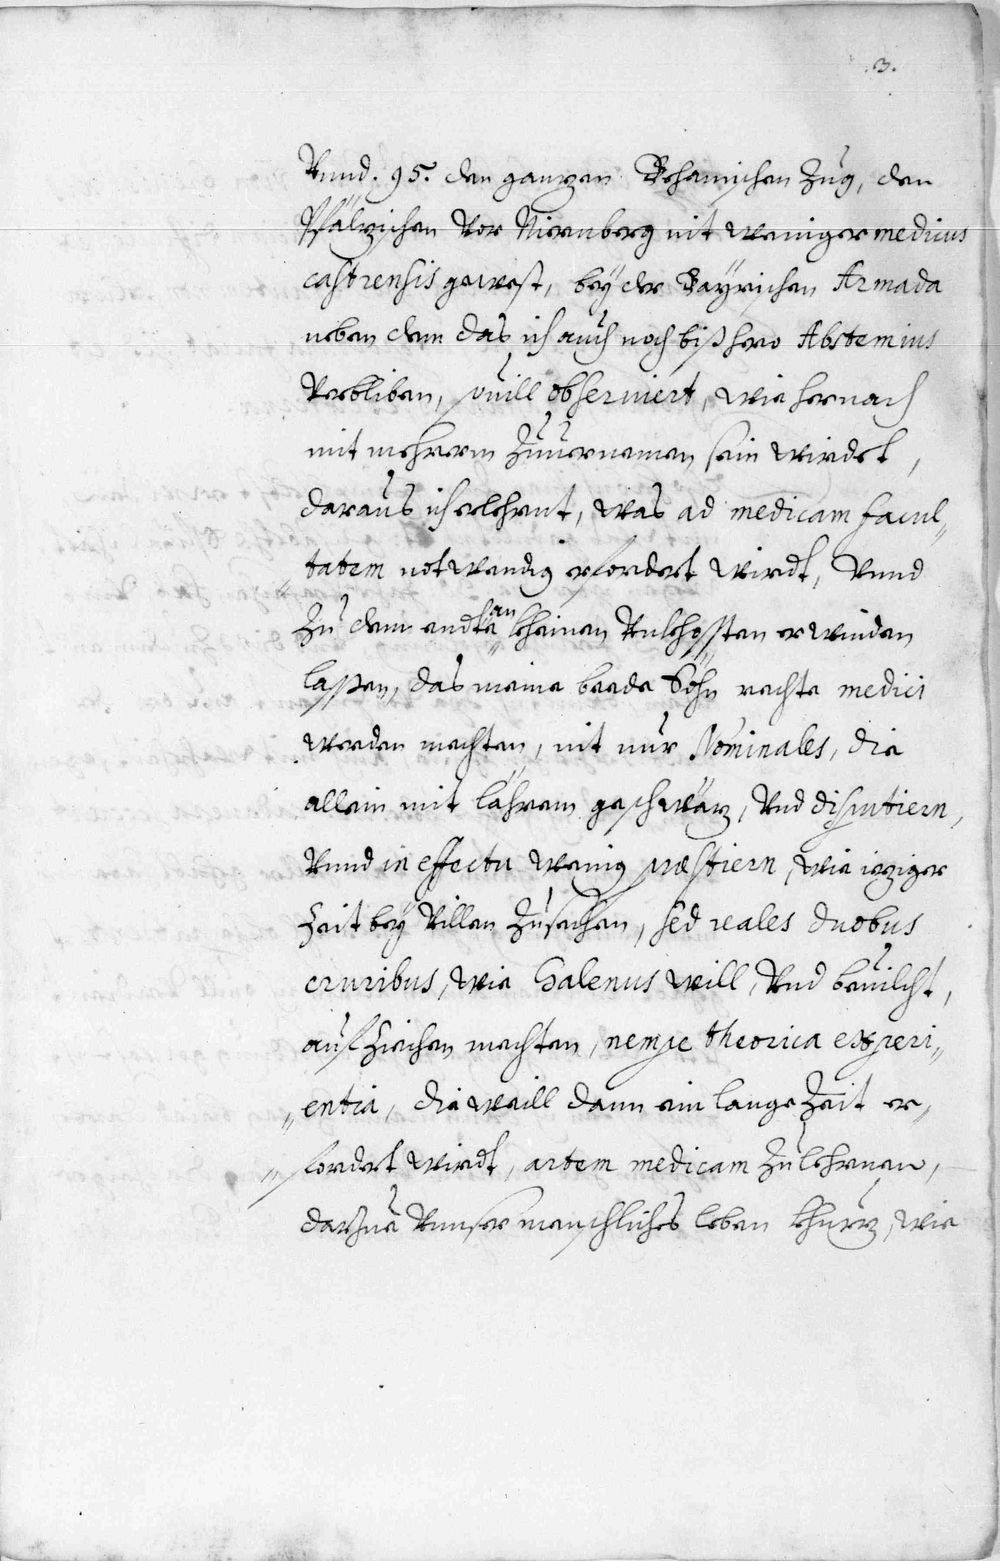 .3.
Vnnd. 95. den ganzen Behamischen Zug, den
Pfälzischen Vor Nirnberg nit weniger medicus
castrensis gewest, bey der Bayrischen Armada
neben dem das ich auch noch bißhero Abstemius
Verbliben, vill obseruiert, wie hernach
mit mehrerm Zuuernemen sein wirdet,
daraus ich erlehrnt, was ad medicam facul„
„tatem notwendig erfordert wirdt, Vnnd
Zu dem endte an kheinen Vnkhossten erwinden
lassen, das meine beede Söhn rechte medici
werden mechten, nit nur Nominales, die
allein mit lährem geschwäz, Vnd disputiern,
Vnnd in effectu wenig præstiern, wie ieziger
Zeit bey Villen Zusechen, sed reales duobus
cruribus, wie Galenus will, Vnd beuilcht,
aufZiechen mechten, nempe theorica experi„
„entia, die weill dann ein lange Zeit er„
„fordert wirdt, artem medicam Zulehrnen,
darZue Vnnser menschliches leben khurz, wie